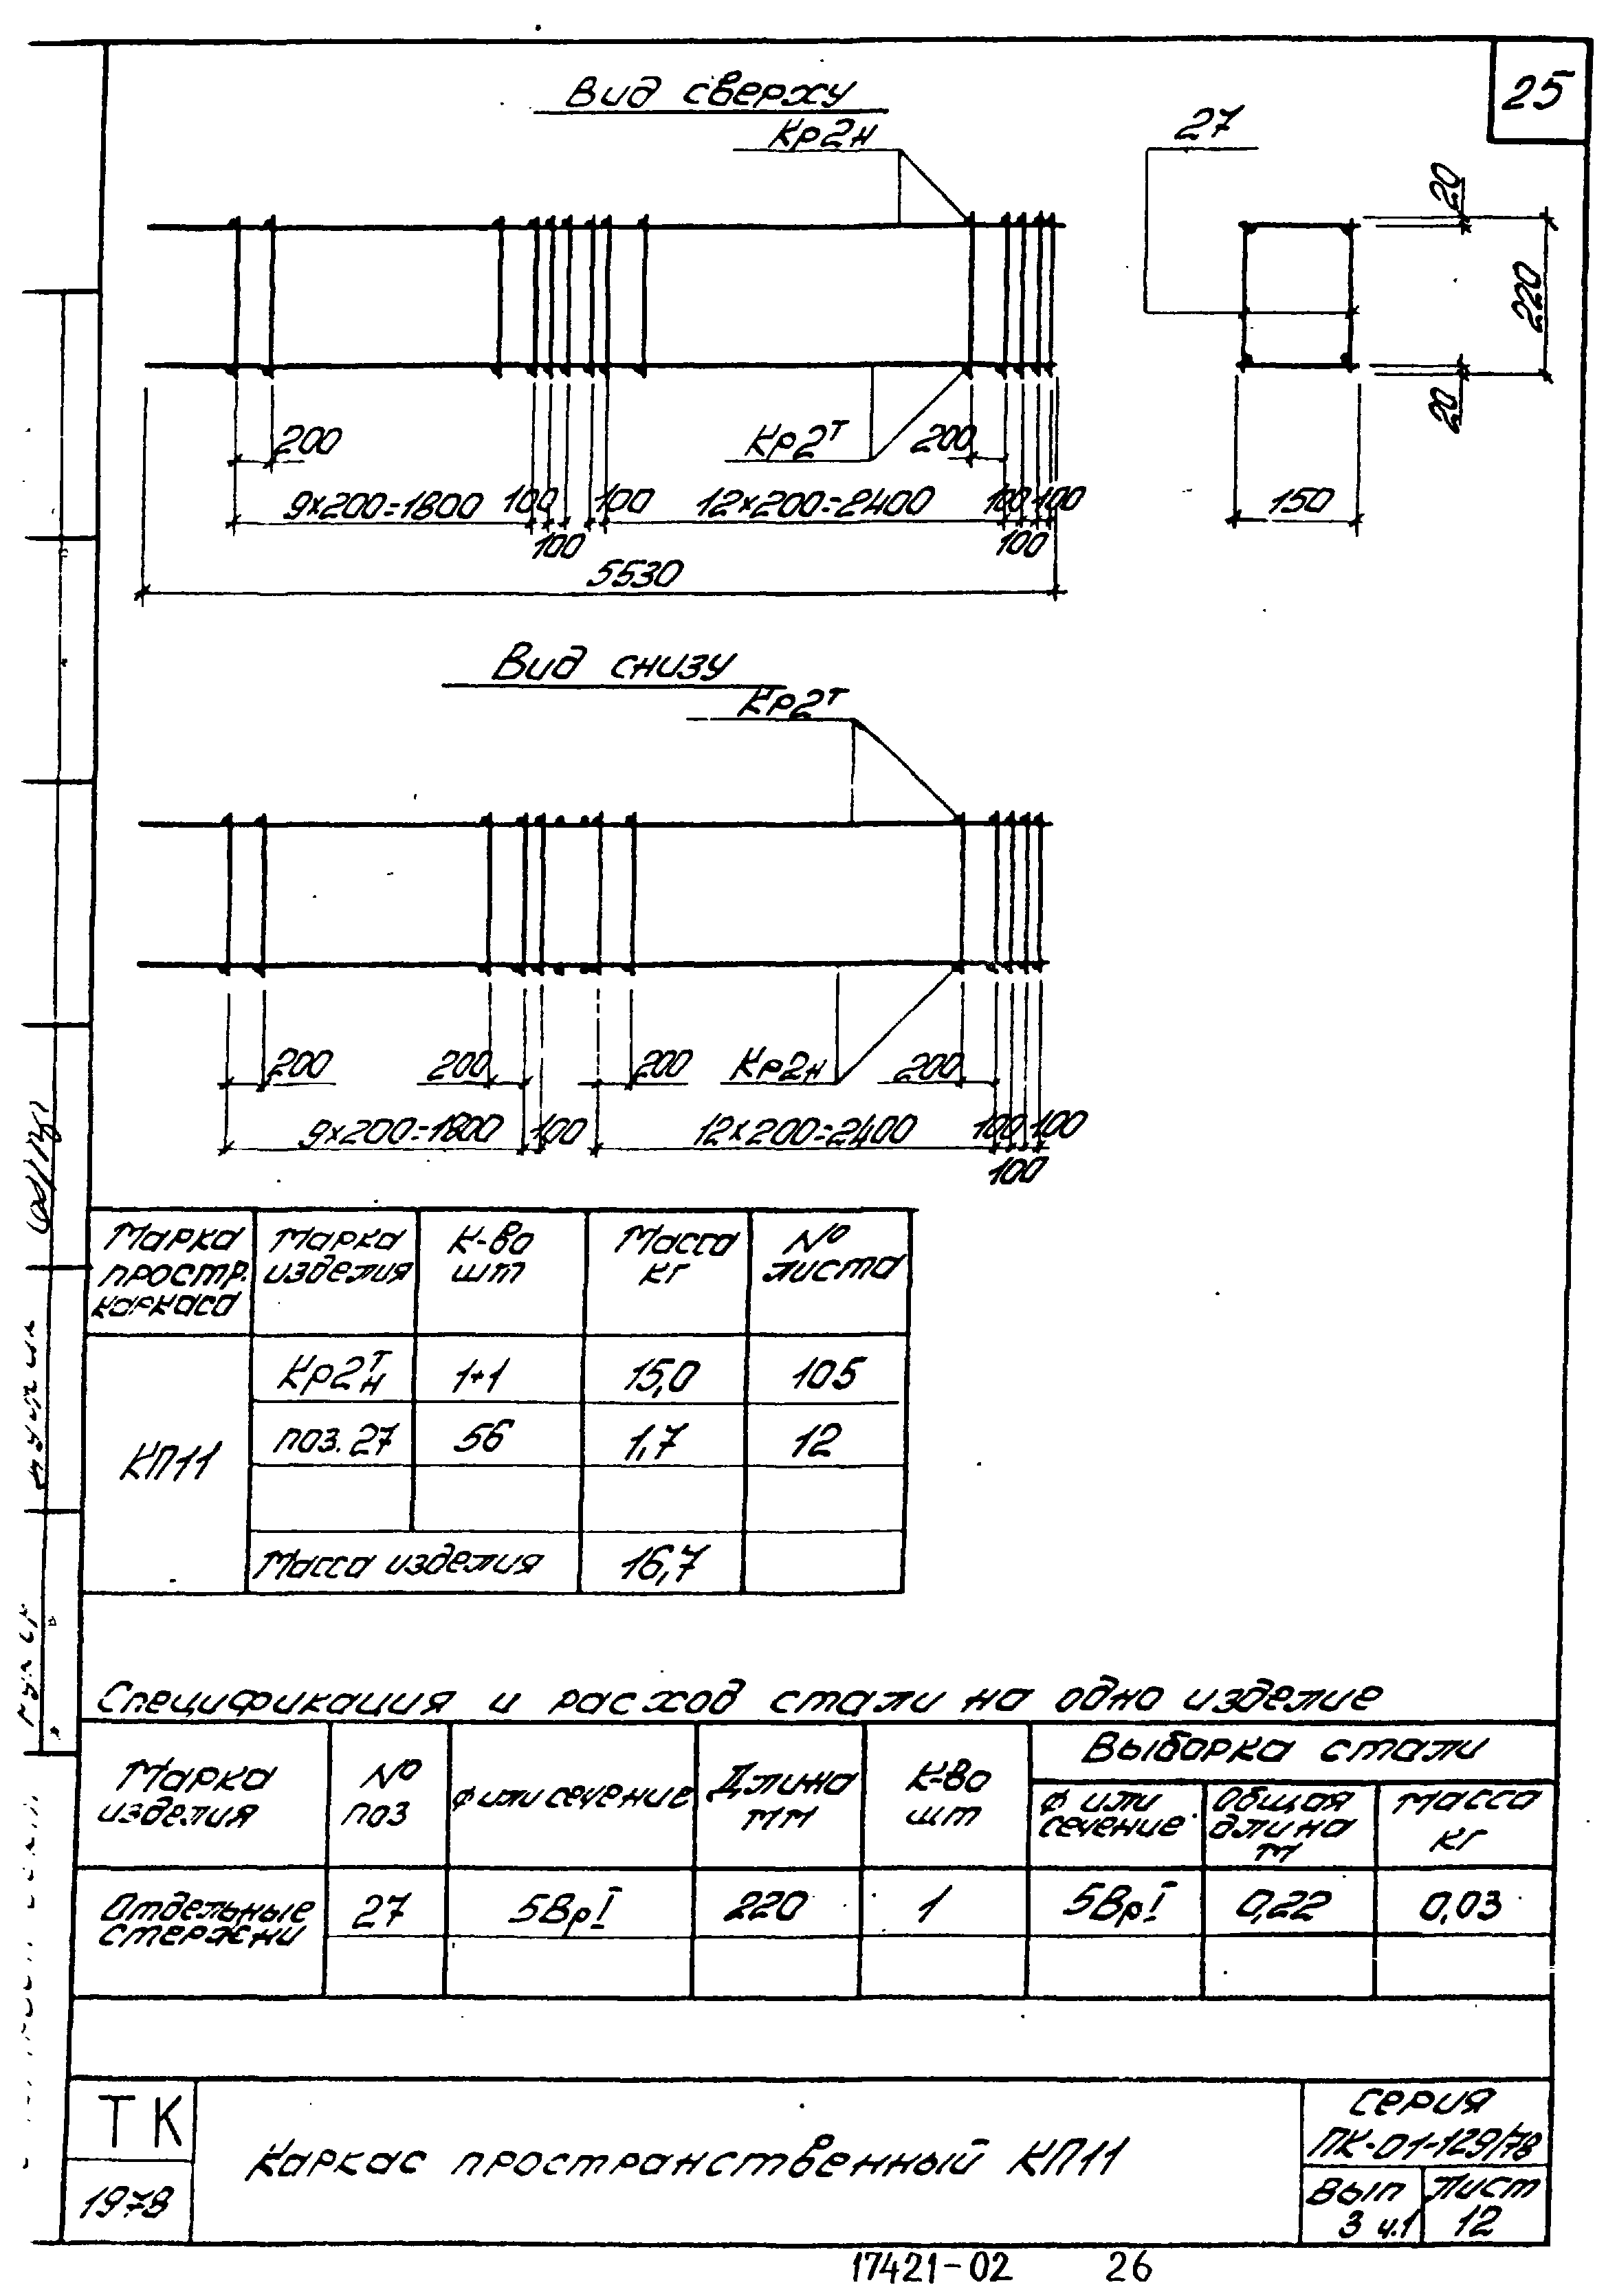 25
Вид сверху
Кр2н
27
20
220
20
200
Кр2т
200
9×200=1800 100 100 12×200=2400 100 100
100 100
150
5530
Вид снизу
Кр2т
200 200 200 Кр2н 200
9×200=1800 100 12×200=2400 100 100
100
Марка простр. каркаса
Марка изделия
К-во шт
Масса кг
№ листа
КП11
Кр2тн 1+1 15,0 105
поз.27 56 1,7 12
Масса изделия 16,7
Спецификация и расход стали на одно изделие
Марка изделия
№ поз
ф или сечение
Длина мм
К-во шт
Выборка стали
ф или сечение
Общая длина м
Масса кг
Отдельные стержни
27 5ВрI 220 1 5ВрI 0,22 0,03
ТК
1978
Каркас пространственный КП11
серия
ПК-01-129/78
Вып 3 ч.1
Лист 12
17421-02 26